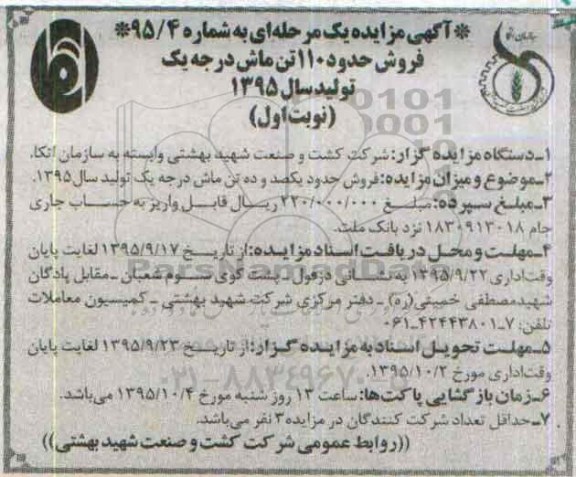 *آگهی مزایده یک مرحله‌ای به شماره ۹۵/۴*
فروش حدود ۱۱۰ تن ماش درجه یک
تولید سال ۱۳۹۵
(نوبت اول)
۱ـ دستگاه مزایده گزار: شرکت کشت و صنعت شهید بهشتی وابسته به سازمان اتکا.
۲ـ موضوع و میزان مزایده: فروش حدود یکصد و ده تن ماش درجه یک تولید سال ۱۳۹۵.
۳ـ مبلغ سپرده: مبلغ ۲۲۰/۰۰۰/۰۰۰ ریال قابل واریز به حساب جاری
جام ۱۸۳۰۹۱۳۰۱۸ نزد بانک ملت.
۴ـ مهلت و محل دریافت اسناد مزایده: از تاریخ ۱۳۹۵/۹/۱۷ لغایت پایان
وقت اداری ۱۳۹۵/۹/۲۲ به نشانی دزفول ـ پشت کوی سوم شعبان ـ مقابل پادگان
شهید مصطفی خمینی (ره) ـ دفتر مرکزی شرکت شهید بهشتی ـ کمیسیون معاملات
تلفن: ۷ـ۰۶۱ـ۴۲۴۴۳۸۰۱
۵ـ مهلت تحویل اسناد به مزایده گزار: از تاریخ ۱۳۹۵/۹/۲۳ لغایت پایان
وقت اداری مورخ ۱۳۹۵/۱۰/۲.
۶ـ زمان بازگشایی پاکت‌ها: ساعت ۱۳ روز شنبه مورخ ۱۳۹۵/۱۰/۴ می‌باشد.
۷ـ حداقل تعداد شرکت کنندگان در مزایده ۳ نفر می‌باشد.
((روابط عمومی شرکت کشت و صنعت شهید بهشتی))
ParsNamadData
۰۲۱-۸۸۳۴۹۶۷۰-۵